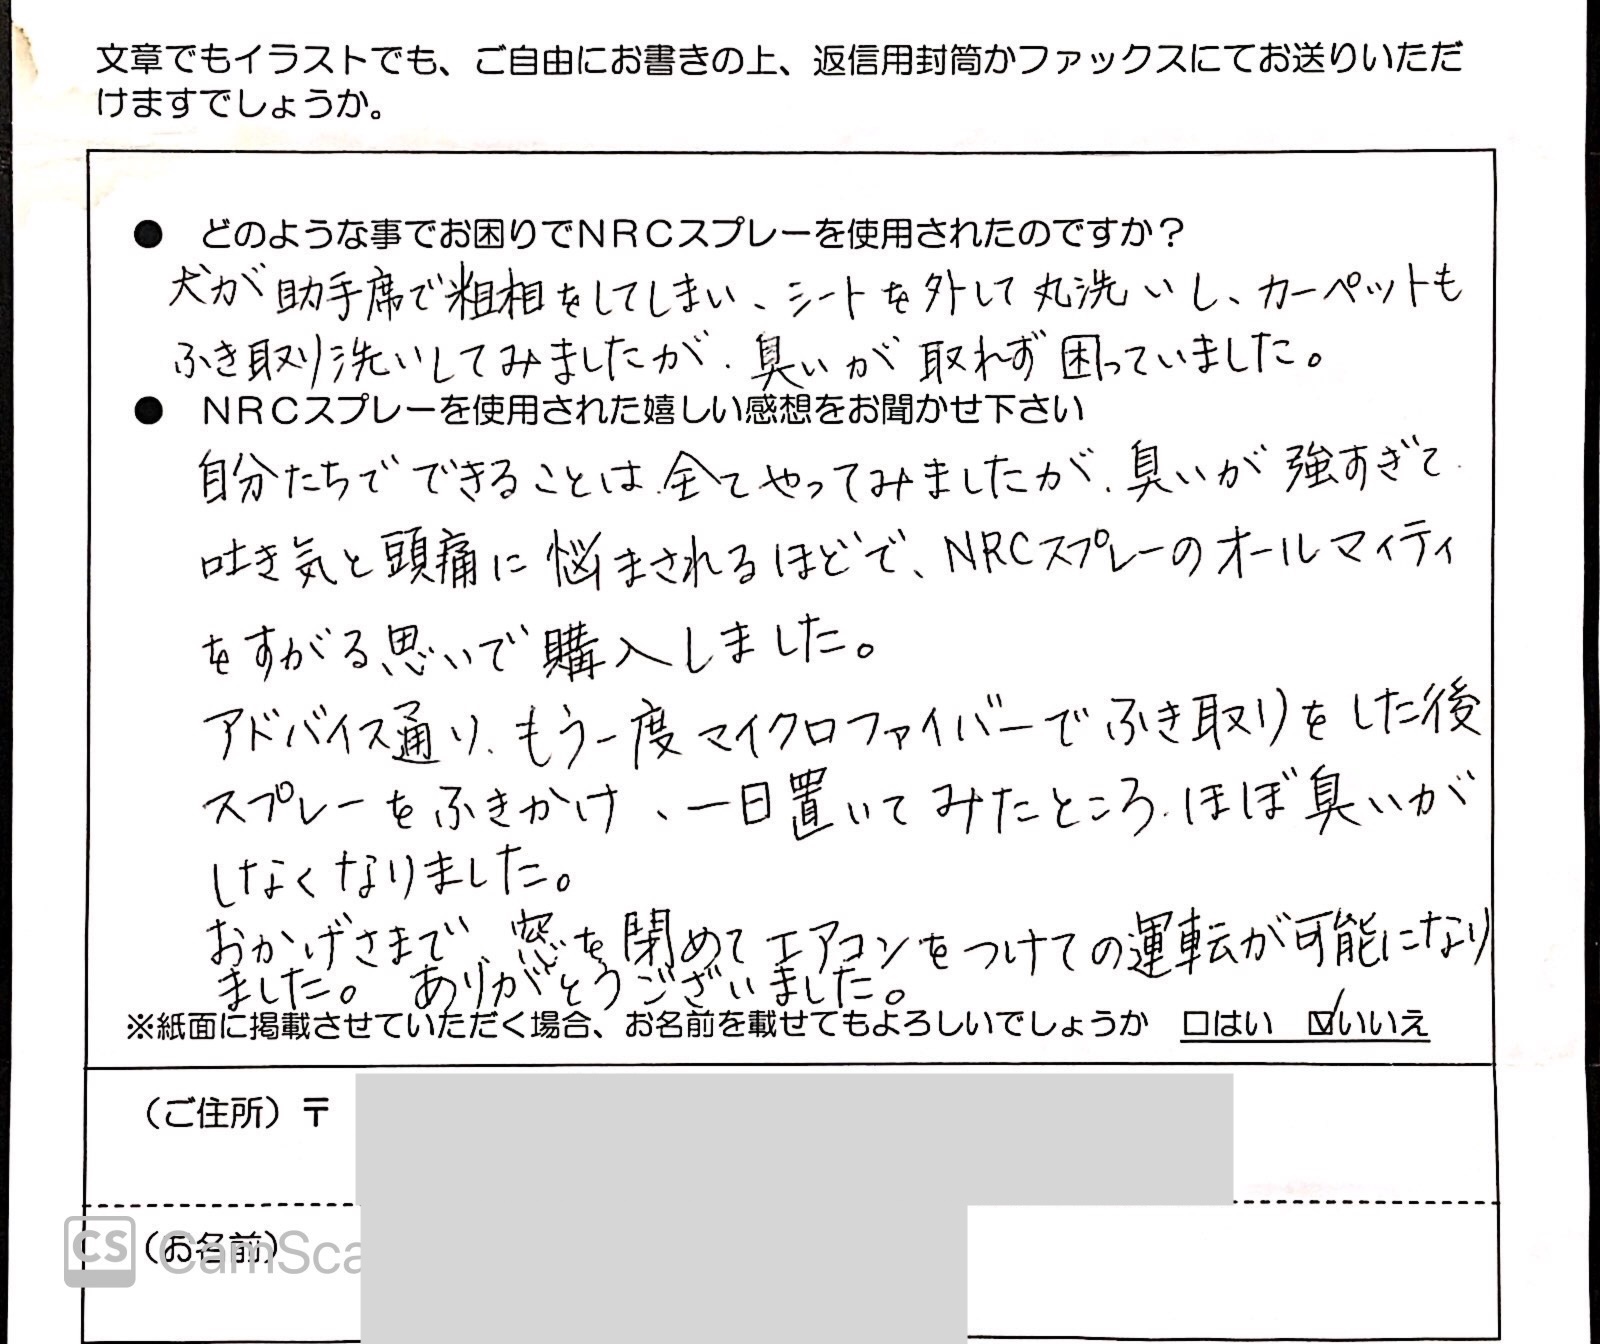 文章でもイラストでも、ご自由にお書きの上、返信用封筒かファックスにてお送りいただ
けますでしょうか。
● どのような事でお困りでNRCスプレーを使用されたのですか？
犬が助手席で粗相をしてしまい、シートを外して丸洗いし、カーペットも
ふき取り洗いしてみましたが、臭いが取れず困っていました。
● NRCスプレーを使用された嬉しい感想をお聞かせ下さい
自分たちでできることは全てやってみましたが、臭いが強すぎて
吐き気と頭痛に悩まされるほどで、NRCスプレーのオールマィティ
をすがる思いで購入しました。
アドバイス通り、もう一度マイクロファイバーでふき取りをした後
スプレーをふきかけ、一日置いてみたところ、ほぼ臭いが
しなくなりました。
おかげさまで 窓を閉めてエアコンをつけての運転が可能になり
ました。 ありがとうございました。
※紙面に掲載させていただく場合、お名前を載せてもよろしいでしょうか □はい ☑いいえ
（ご住所）〒
（お名前）
CS CamSca